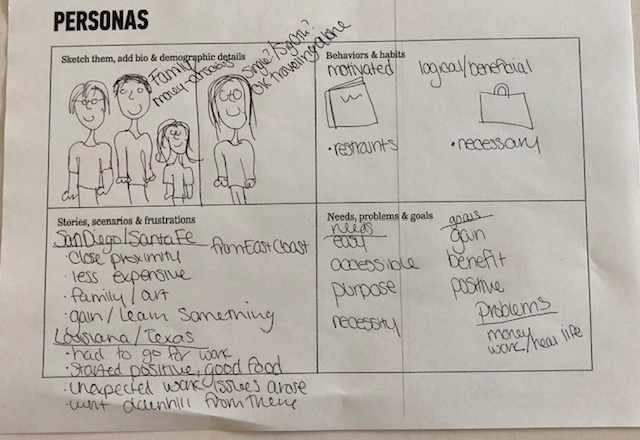 PERSONAS
Sketch them, add bio & demographic details
Family
money-conscious
Single?/
OK traveling alone
Behaviors & habits
motivated
logical/beneficial
• restraints
• necessary
Stories, scenarios & frustrations
San Diego/Santa Fe
from East Coast
• Close proximity
• less expensive
• family/art
• gain/learn something
Louisiana/Texas
• had to go for work
• Started positive, good food
• unexpected work issues arose
• went downhill from there
Needs, problems & goals
needs
easy
accessible
purpose
necessity
goals
gain
benefit
positive
Problems
money
work/real life